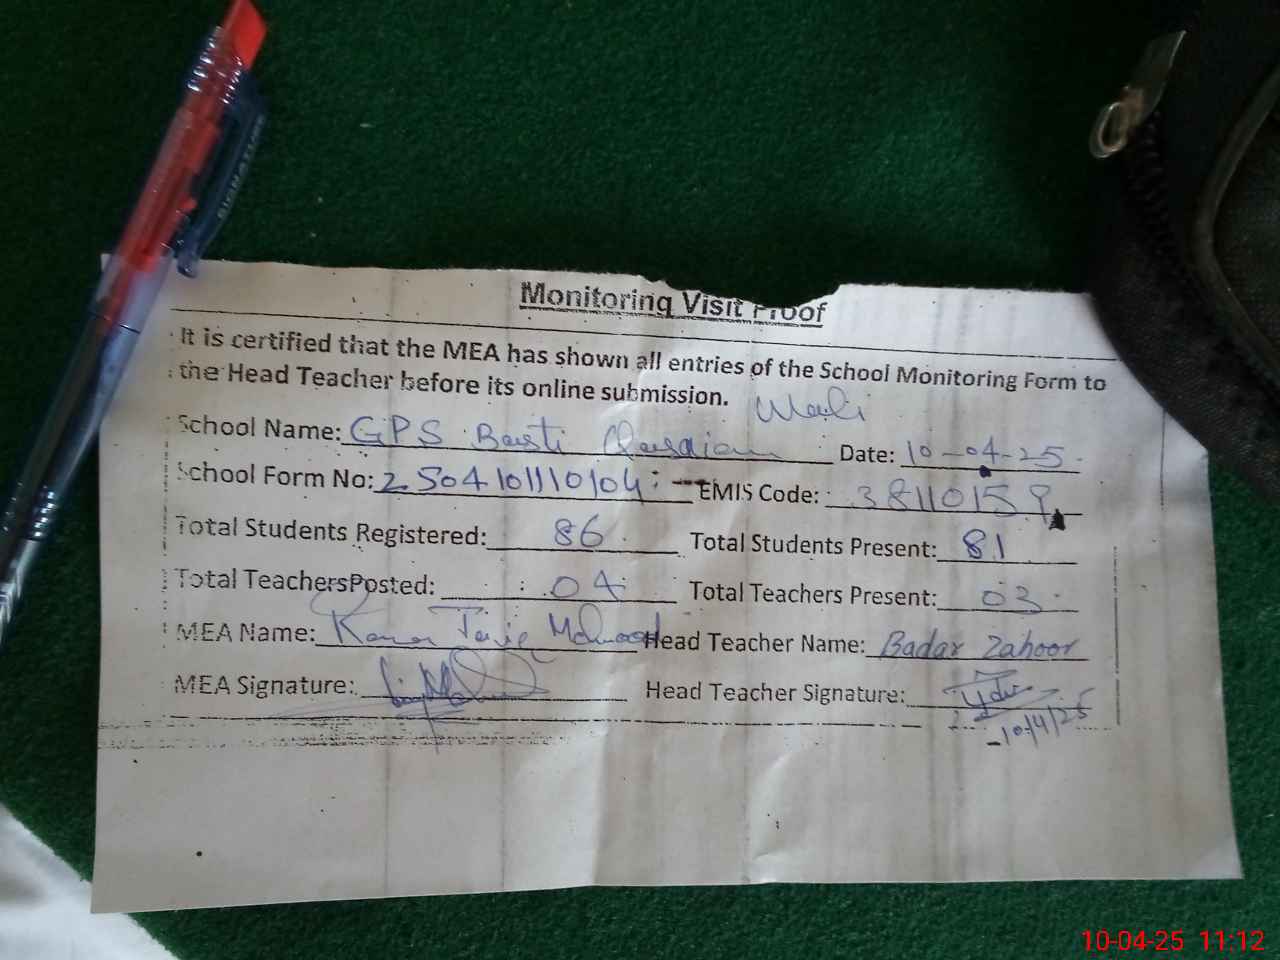 SIGNATURE
Monitoring Visit Proof
It is certified that the MEA has shown all entries of the School Monitoring Form to
the Head Teacher before its online submission.
Wali
School Name: GPS Basti Date: 10-04-25
School Form No: 2504101110104 EMIS Code: 38110159
Total Students Registered: 86 Total Students Present: 81
Total TeachersPosted: 04 Total Teachers Present: 03
MEA Name: Head Teacher Name: Badar Zahoor
MEA Signature: Head Teacher Signature:
10/4/25
10-04-25 11:12